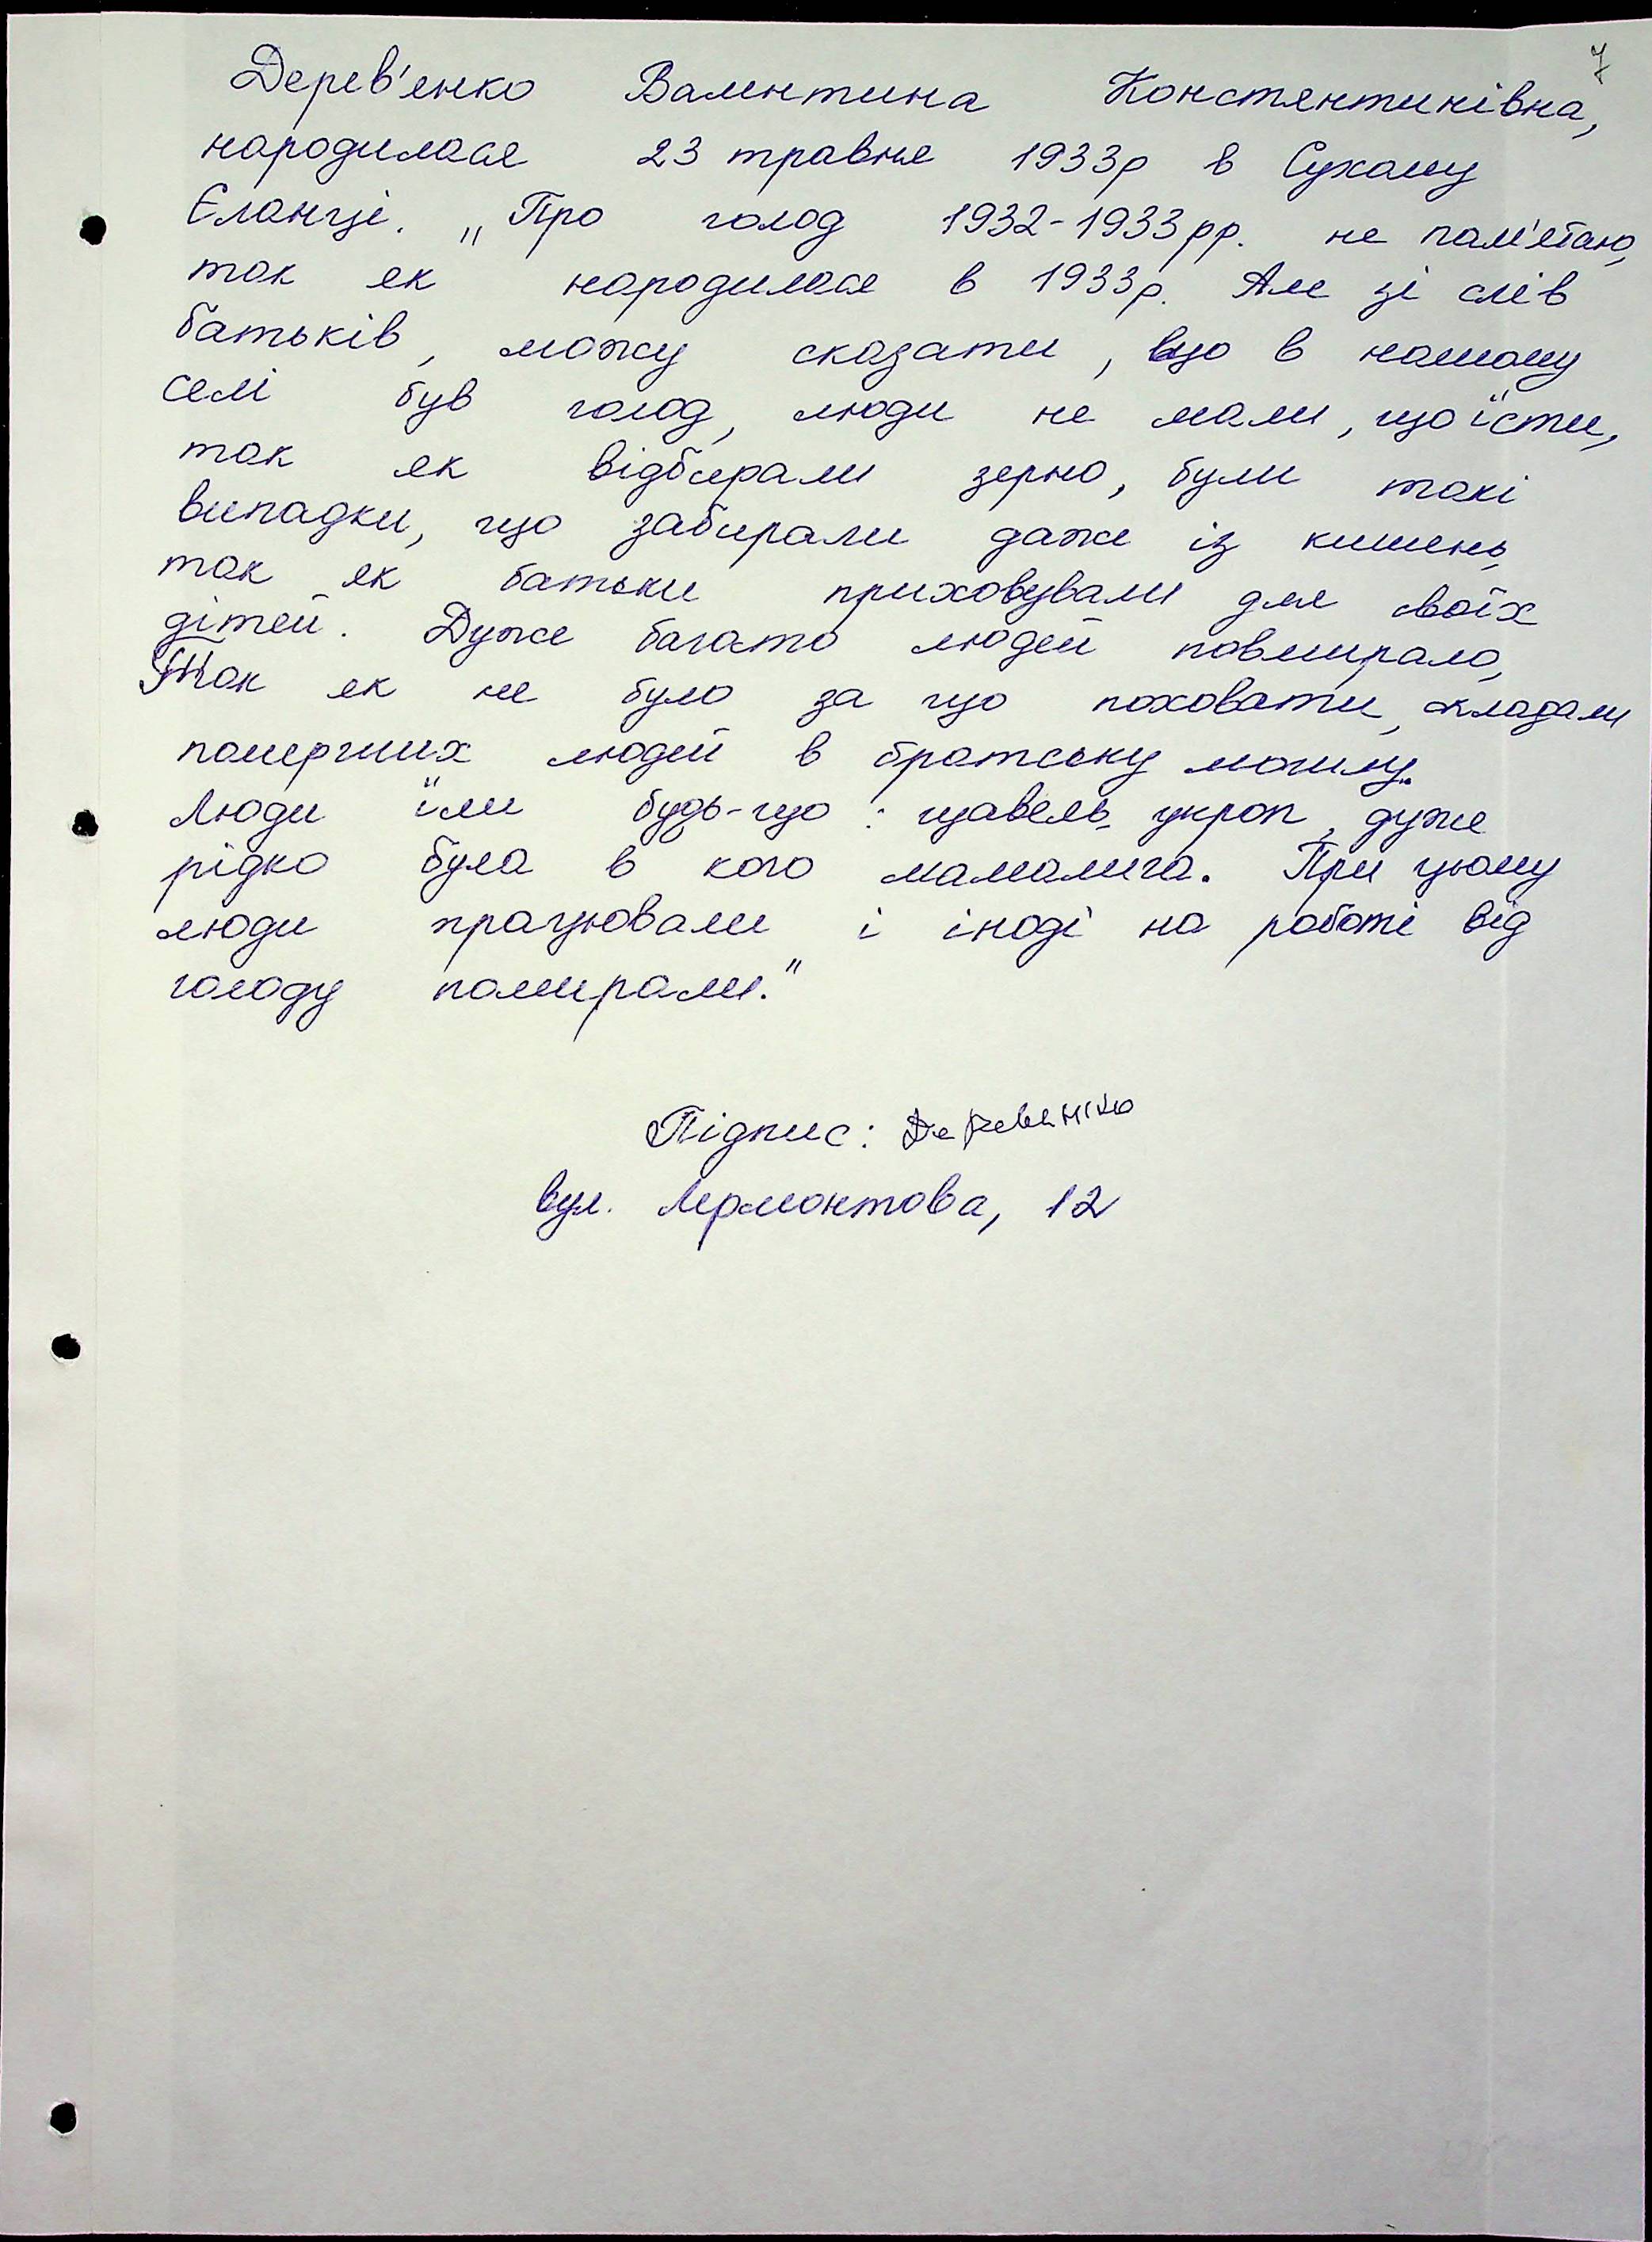 7
Дерев'янко Валентина Констянтинівна,
народилася 23 травня 1933р в Сухому
Єланці. „Про голод 1932-1933рр. не пам'ятаю,
так як народилася в 1933р. Але зі слів
батьків, можу сказати, що в нашому
селі був голод, люди не мали, що їсти,
так як відбирали зерно, були такі
випадки, що забирали даже із кишень,
так як батьки приховували для своїх
дітей. Дуже багато людей повмирало,
Так як не було за що поховати, складали
померших людей в братську могилу.
Люди їли будь-що: щавель, укроп, дуже
рідко була в кого мамалига. При цьому
люди працювали і іноді на роботі від
голоду помирали."
Підпис: Деревянко
вул. Лермонтова, 12